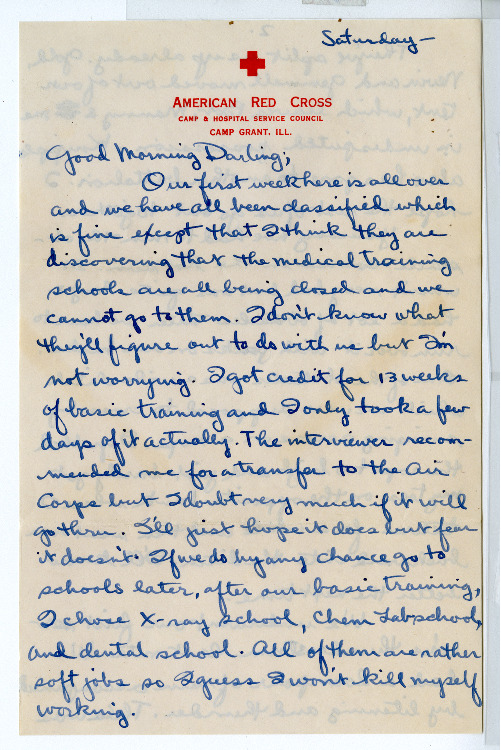 Saturday—
AMERICAN RED CROSS
CAMP & HOSPITAL SERVICE COUNCIL
CAMP GRANT, ILL.
Good Morning Darling;
Our first week here is all over
and we have all been classified which
is fine except that I think they are
discovering that the medical training
schools are all being closed and we
cannot go to them. I don't know what
they'll figure out to do with us but I'm
not worrying. I got credit for 13 weeks
of basic training and I only took a few
days of it actually. The interviewer recom-
mended me for a transfer to the Air
Corps but I doubt very much if it will
go thru. I'll just hope it does but fear
it doesn't. If we do by any chance go to
schools later, after our basic training,
I chose X-ray school, Chem Lab school,
and dental school. All of them are rather
soft jobs so I guess I won't kill myself
working.